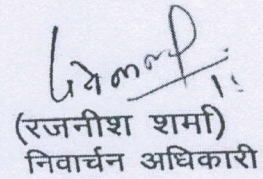 (रजनीश शर्मा)
निवार्चन अधिकारी